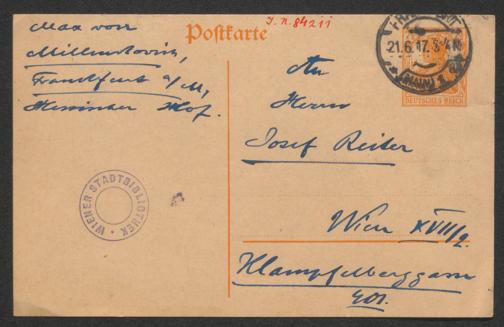 J. N. 84211
Postkarte
Max von
Millenkovich,
Frankfurt a/M,
Hof.
FRANKFURT
21.6.17. 3-4N
(MAIN) 1
DEUTSCHES REICH
An
Herrn
Josef Reiter
Wien XVIII/2.
WIENER STADTBIBLIOTHEK